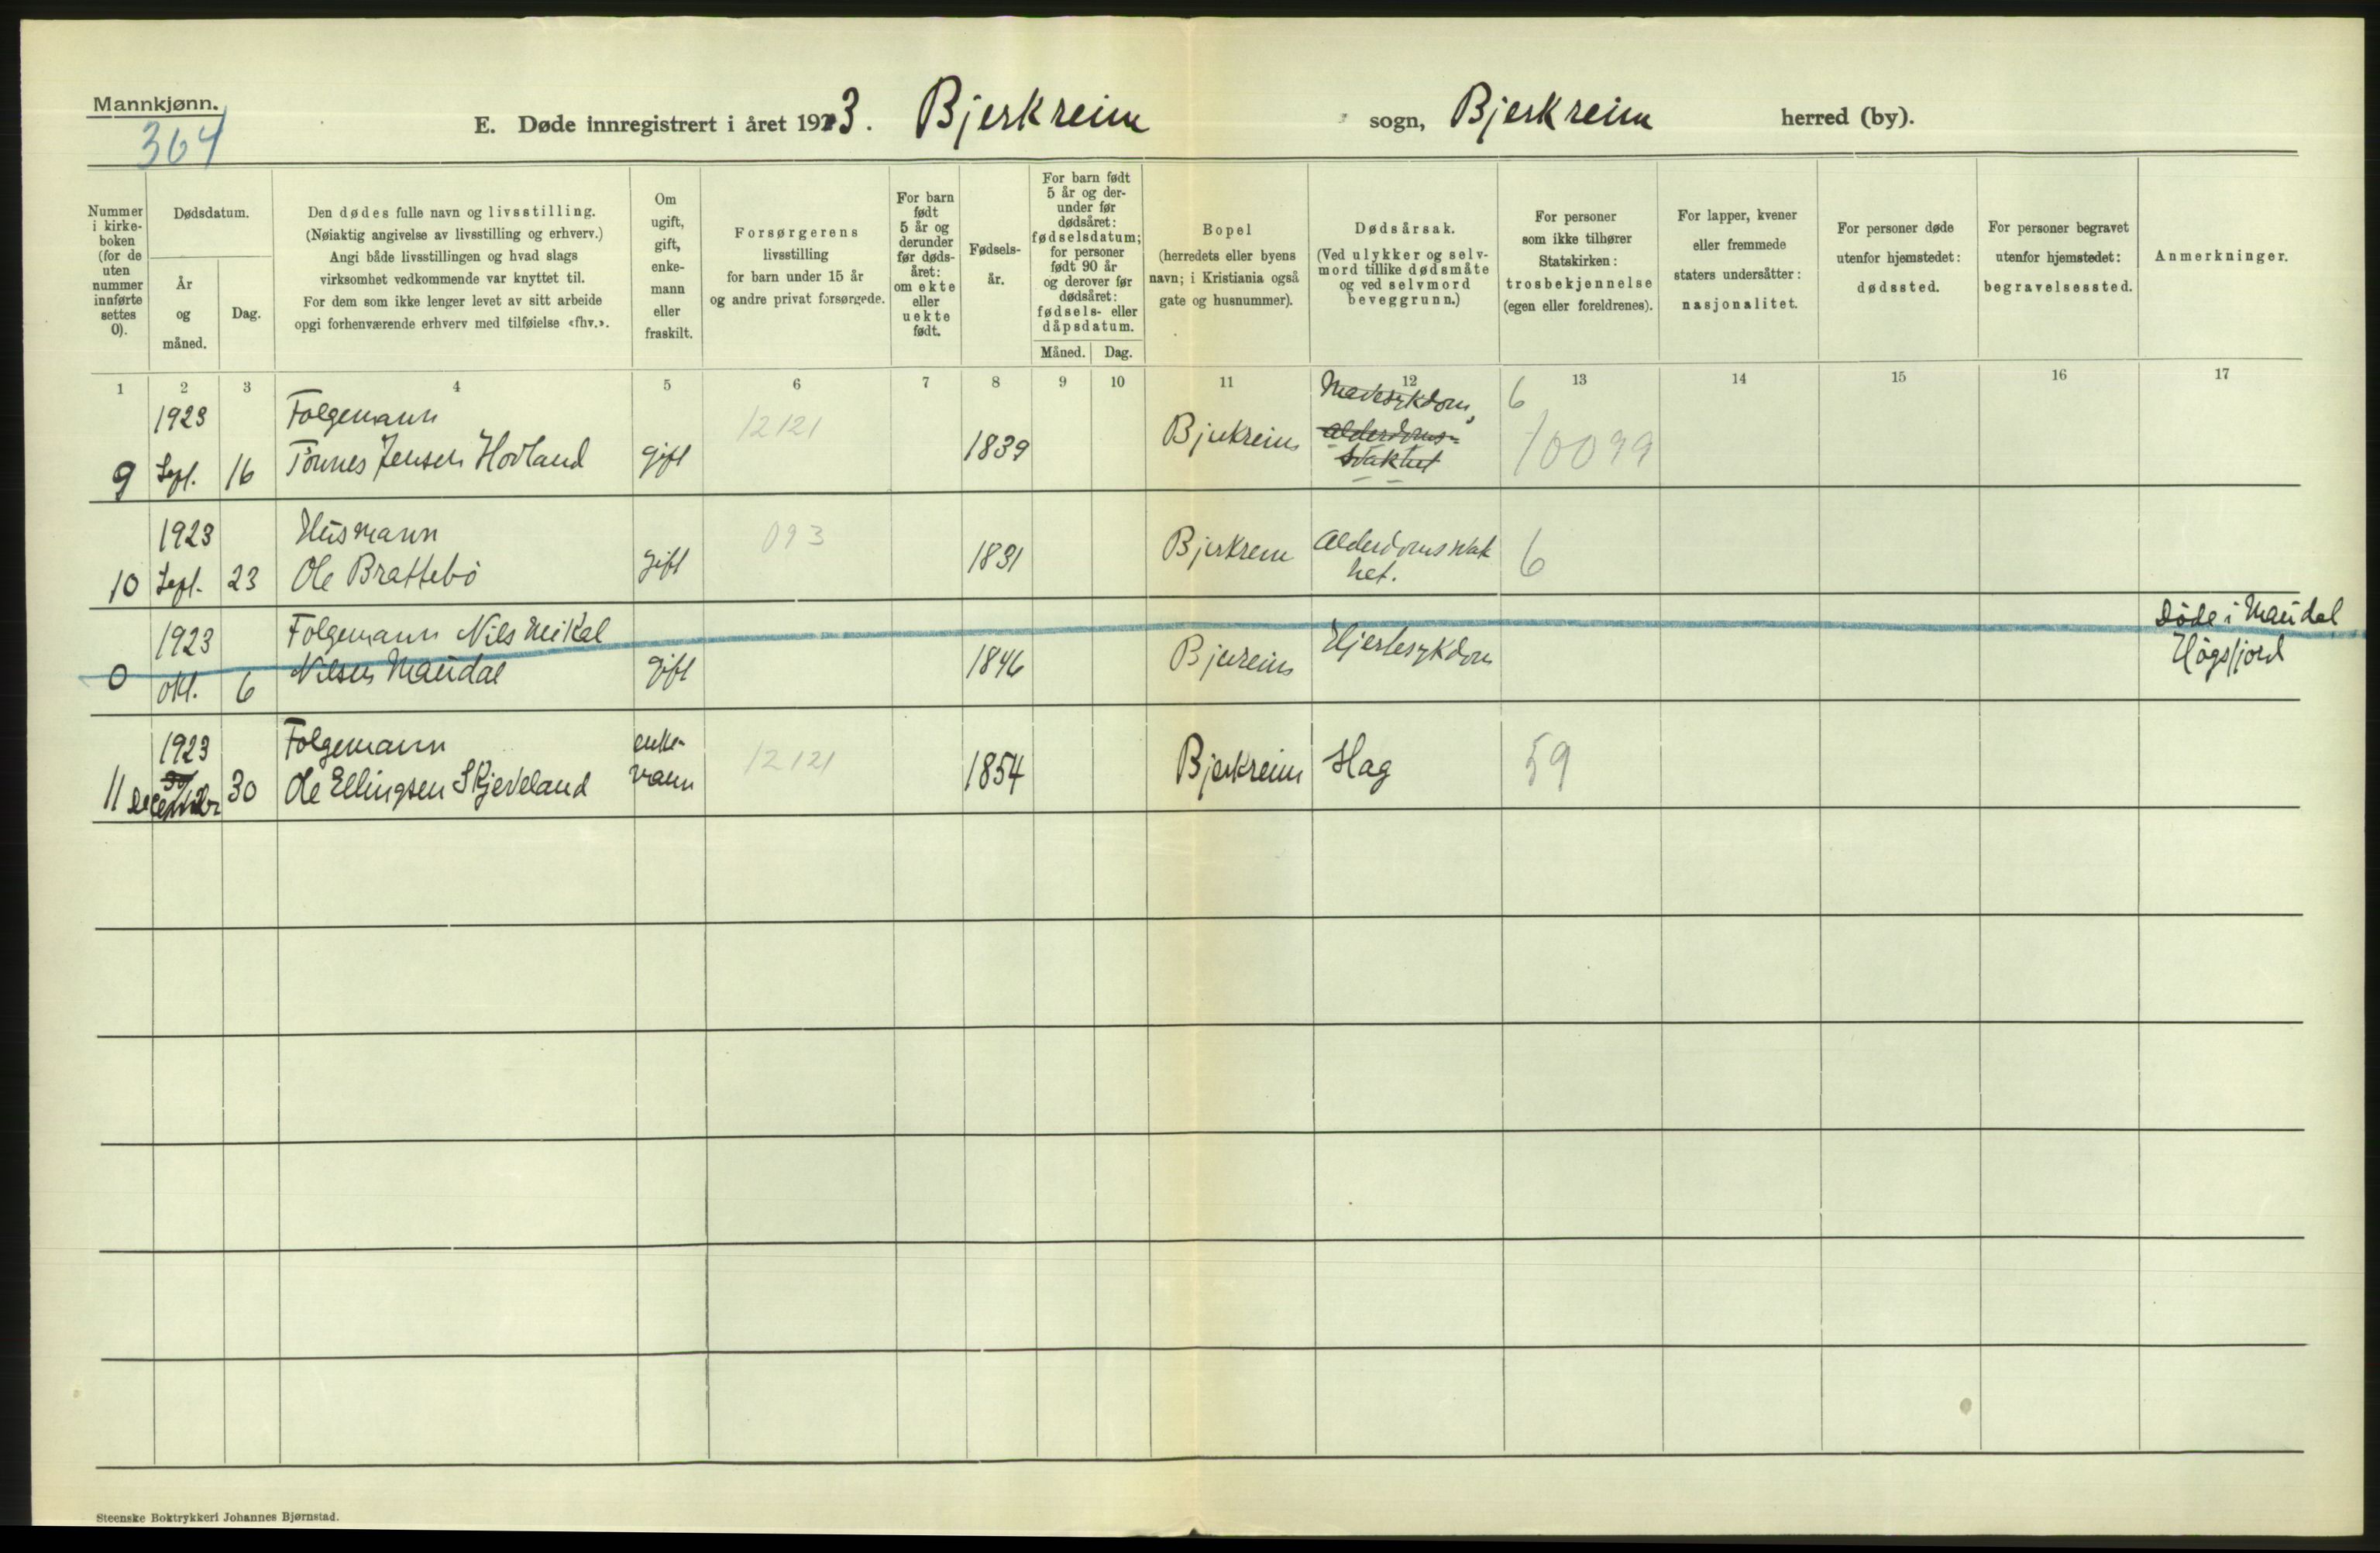 Mannkjønn.
364
E. Døde innregistrert i året 1923. Bjerkreim sogn, Bjerkreim herred (by).
Nummer i kirke-boken (for de uten nummer innførte settes 0).
Dødsdatum.
År og måned.
Dag.
Den dødes fulle navn og livsstilling.
(Nøiaktig angivelse av livsstilling og erhverv.)
Angi både livsstillingen og hvad slags
virksomhet vedkommende var knyttet til.
For dem som ikke lenger levet av sitt arbeide
opgi forhenværende erhverv med tilføielse «fhv.».
Om ugift, gift, enke-mann eller fraskilt.
Forsørgerens
livsstilling
for barn under 15 år
og andre privat forsørgede.
For barn født 5 år og derunder før døds-året: om ekte eller uekte født.
Fødsels-år.
For barn født 5 år og der-under før dødsåret: fødselsdatum; for personer født 90 år og derover før dødsåret: fødsels- eller dåpsdatum.
Måned. Dag.
Bopel
(herredets eller byens
navn; i Kristiania også
gate og husnummer).
Dødsårsak.
(Ved ulykker og selv-
mord tillike dødsmåte
og ved selvmord
beveggrunn.)
For personer
som ikke tilhører
Statskirken:
trosbekjennelse
(egen eller foreldrenes).
For lapper, kvener
eller fremmede
staters undersåtter:
nasjonalitet.
For personer døde
utenfor hjemstedet:
dødssted.
For personer begravet
utenfor hjemstedet:
begravelsessted.
Anmerkninger.
1 2 3 4 5 6 7 8 9 10 11 12 13 14 15 16 17
1923 Folgemann 12121 Mavesykdom, 6
9 Sept. 16 Tönnes Jensen Hovland gift 1839 Bjerkreim alderdoms-
svakhet 10099
1923 Husmann 093
10 Sept. 23 Ole Brattebö gift 1831 Bjerkreim Alderdomsvak
het. 6
1923 Folgemann Nils Mikal Döde i Maudal
0 okt. 6 Nilsen Maudal gift 1846 Bjerreim Hjertesykdom Högsfjord
1923 Folgemann enke-
30/12
11 December 30 Ole Ellingsen Skjeveland mann 12121 1854 Bjerkreim Slag 59
Steenske Boktrykkeri Johannes Bjørnstad.